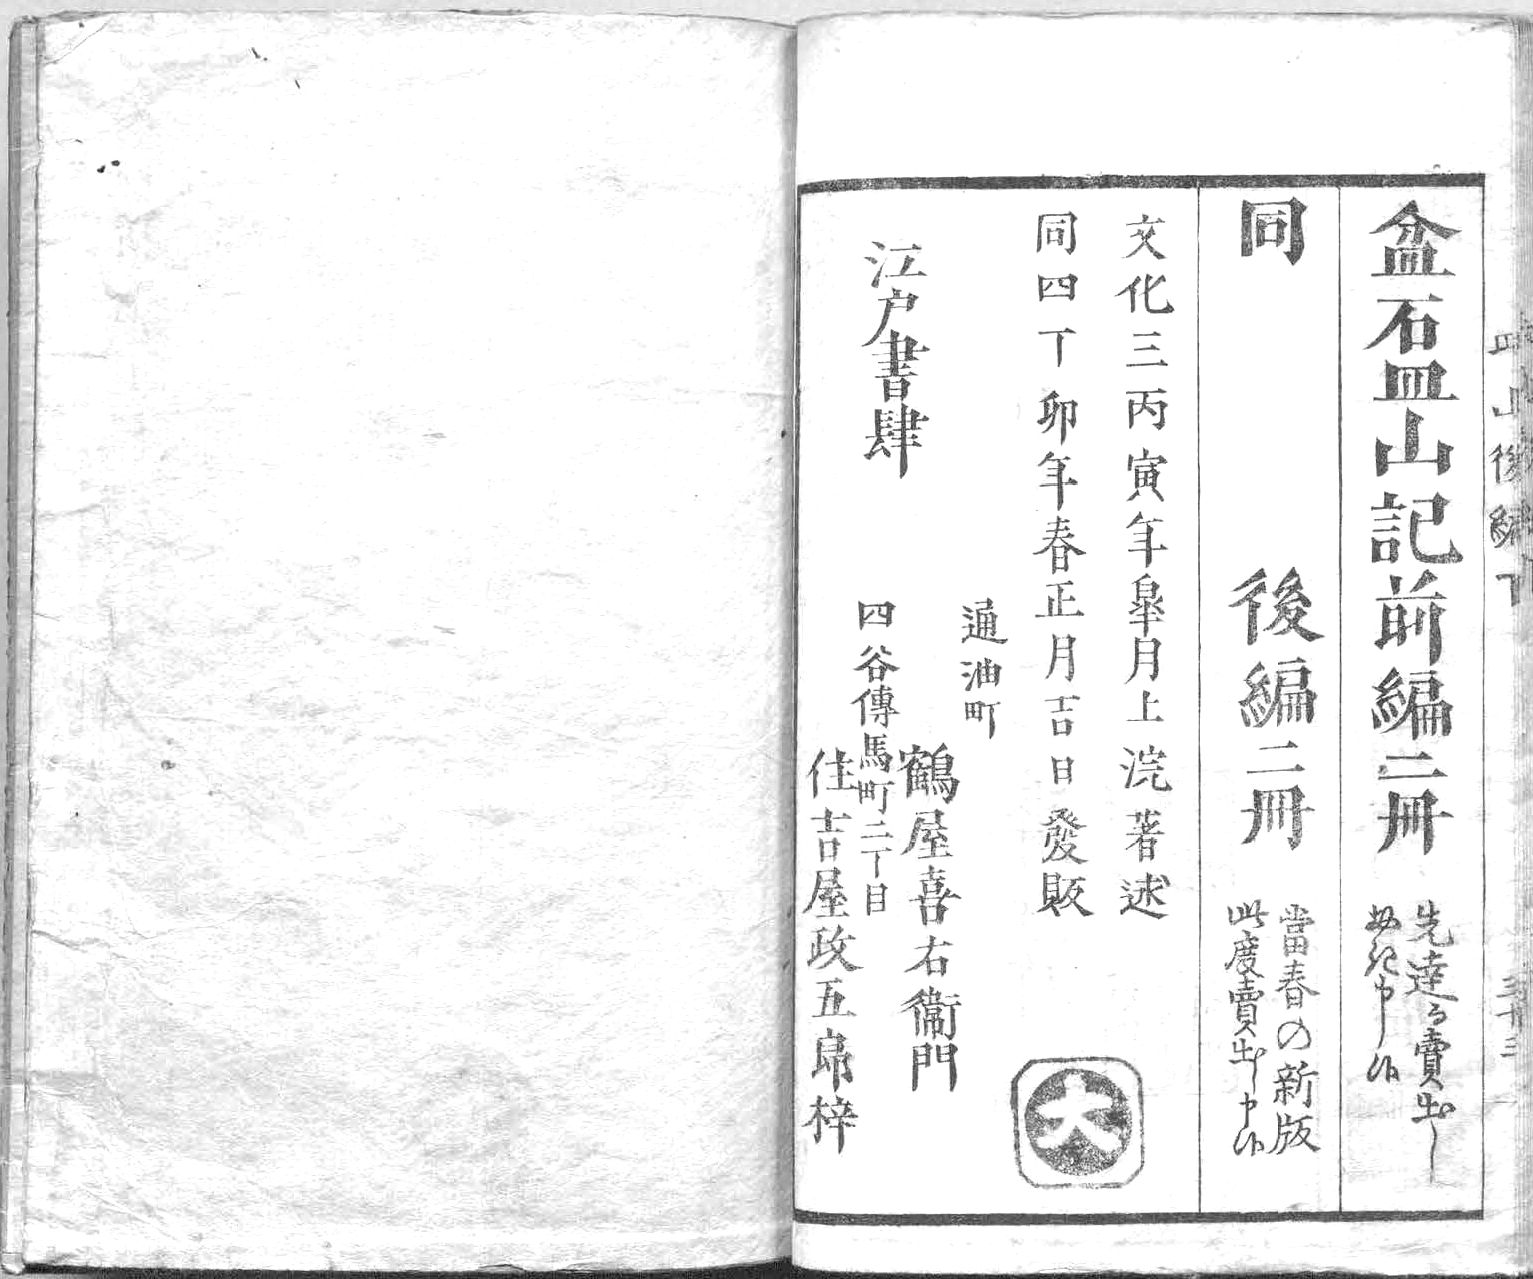 盆石皿山記前編二冊
先達而賣出し
申候
同 後編二冊
當春の新版
此度賣出し申候
文化三丙寅年皐月上浣著述
同四丁卯年春正月吉日發販
江戸書肆
通油町
鶴屋喜右衞門
四谷傳馬町二丁目
住吉屋政五郎梓
大
皿山後編下
三十三